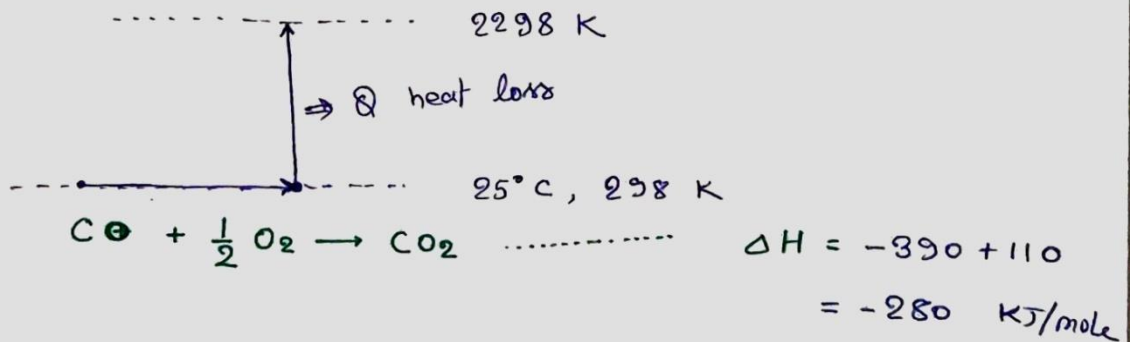 2298 K
⇒ Q heat loss
25°C, 298 K
CO + 1/2 O2 → CO2 ............ ΔH = -390 + 110
= -280 KJ/mole